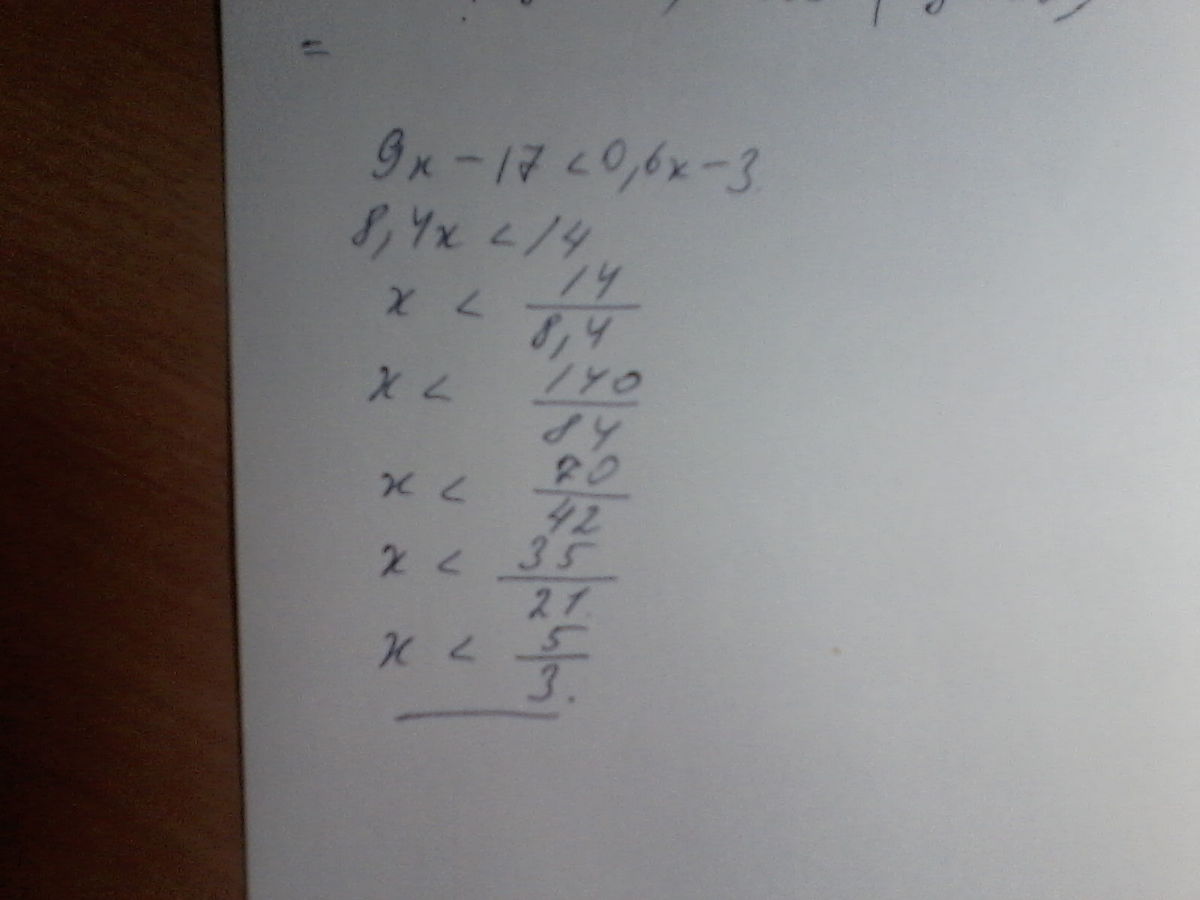 =
9x - 17 < 0,6x - 3
8,4x < 14
x < 14/8,4
x < 140/84
x < 70/42
x < 35/21
x < 5/3.